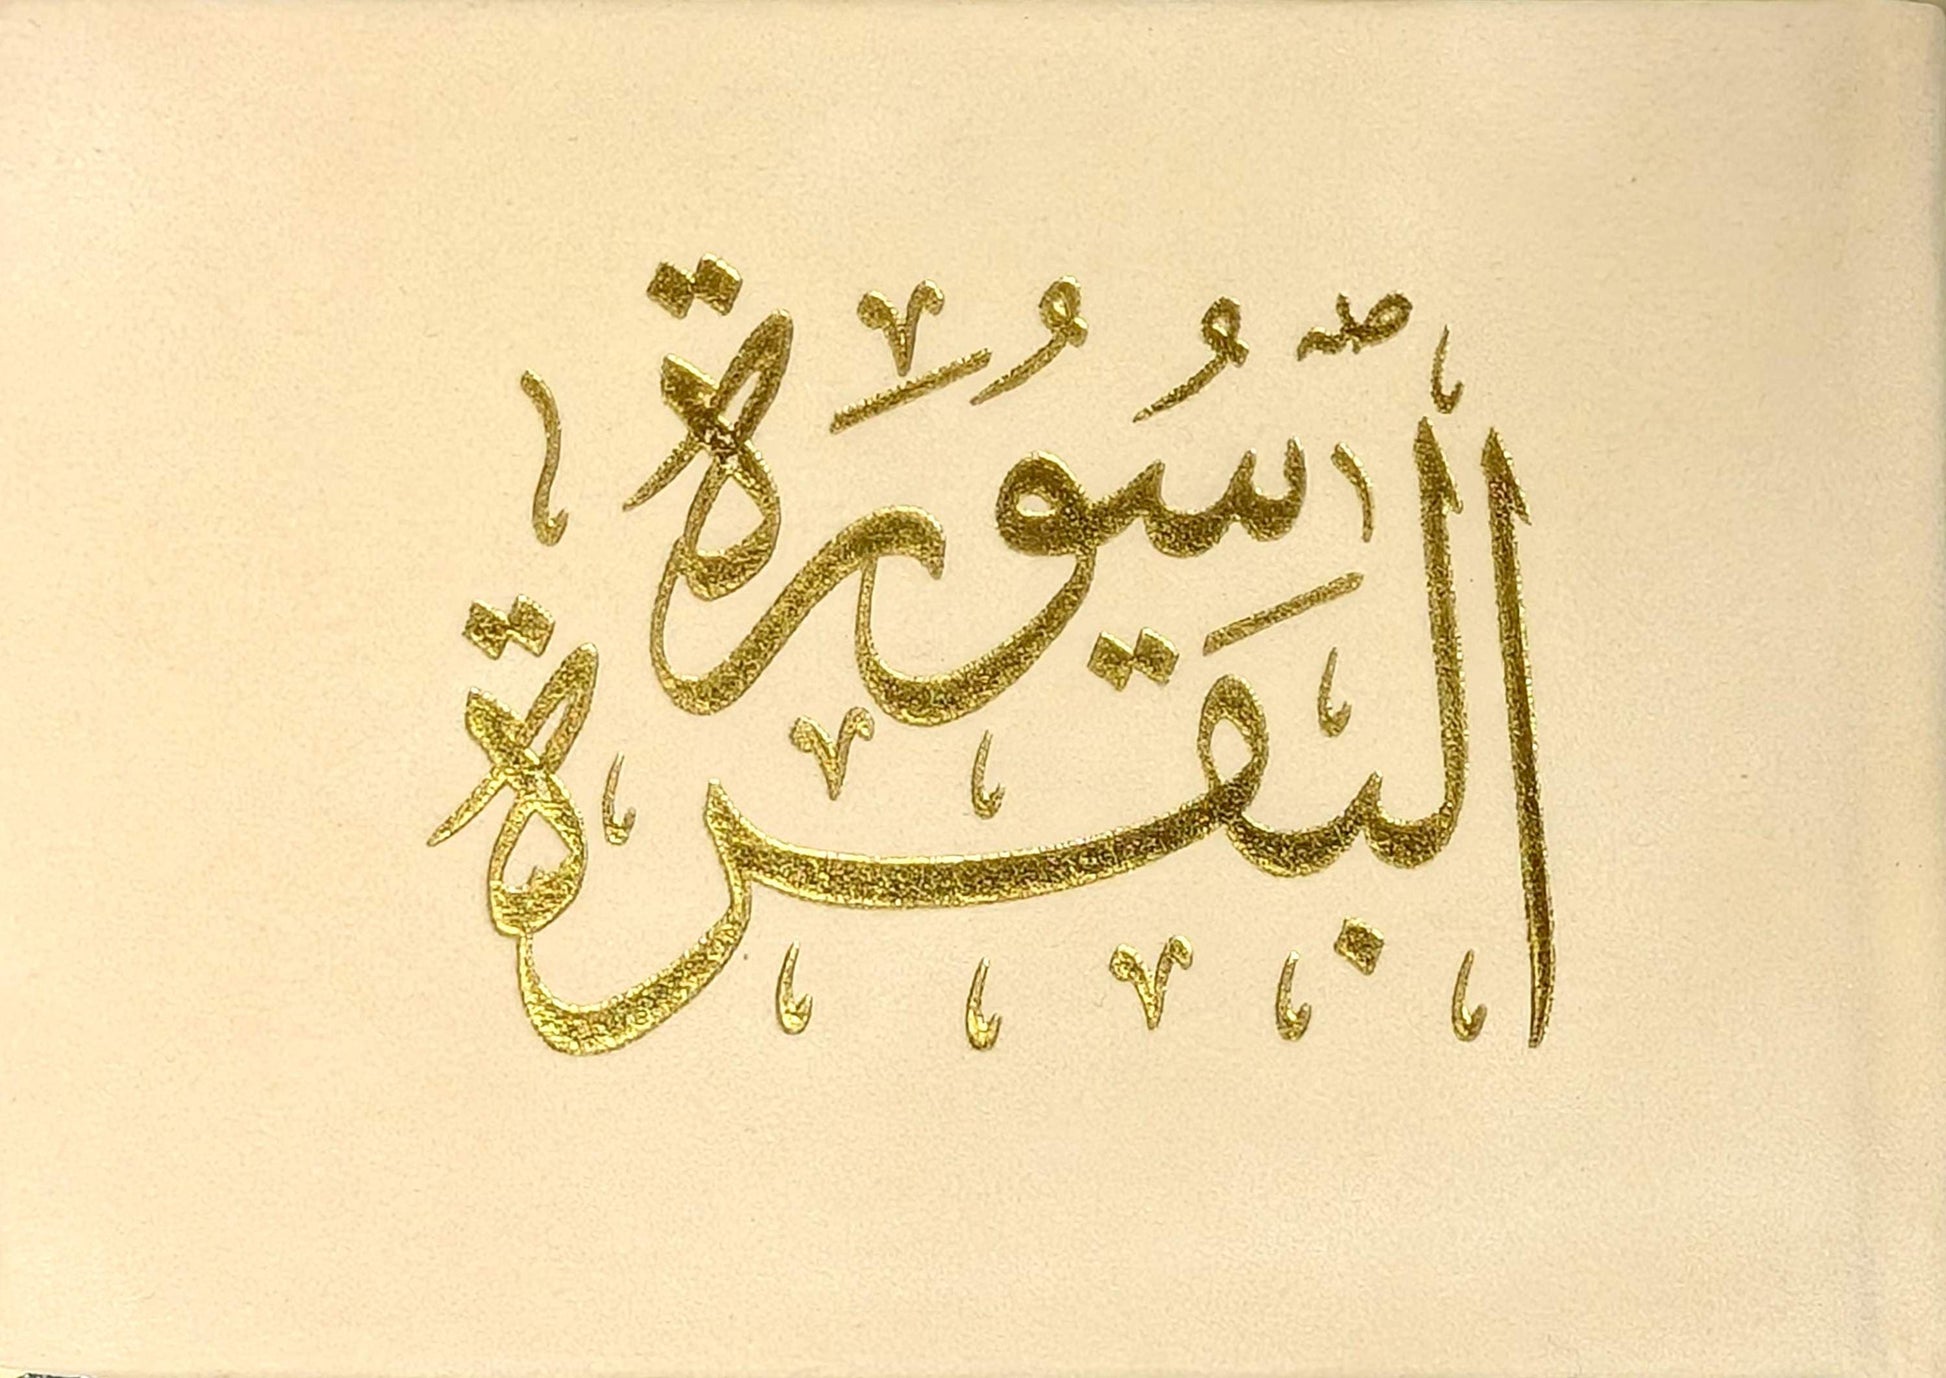 سُورَةُ
الْبَقَرَة